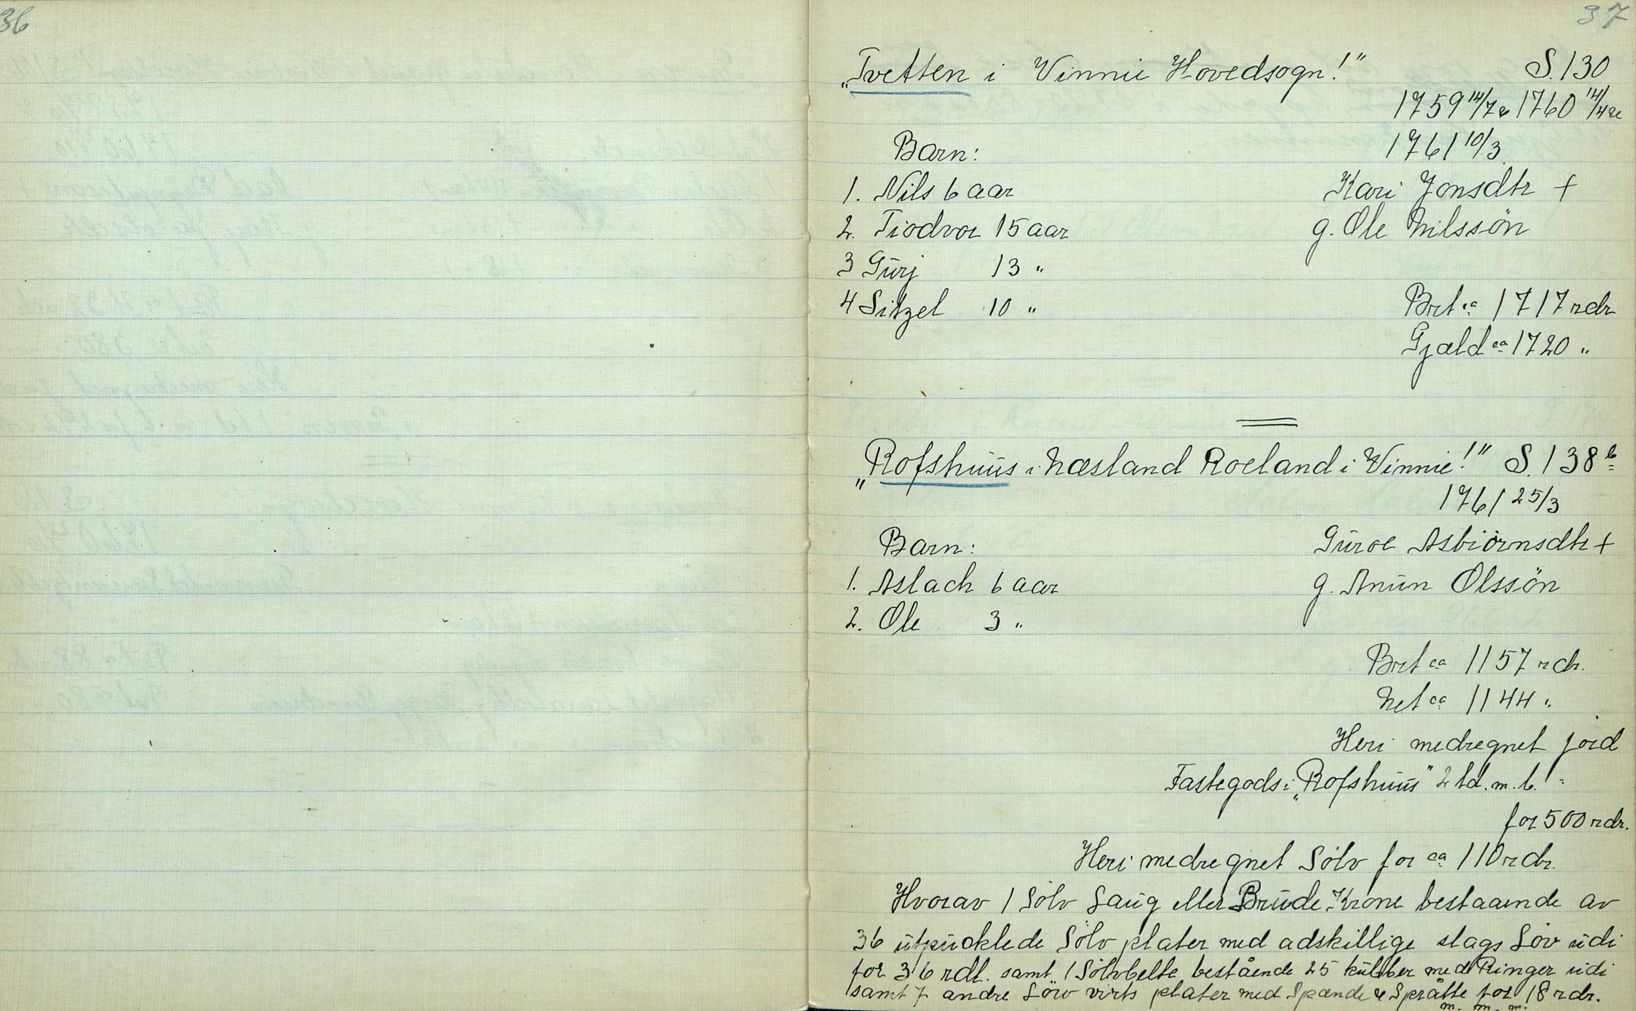 36
37
"Tvetten i Vinnie Hovedsogn!" S. 130
1759 14/7 & 1760 14/4
1761 10/3
Barn:
1. Nils 6 aar Kari Jonsdtr +
2. Tiodvor 15 aar g. Ole Nilssön
3 Gurj 13 "
4 Sitzel 10 " Brt ca 1717 rdr
Gjæld ca 1720 "
"Rofshuus i Næsland Roeland i Vinnie!" S. 138 b
1761 25/3
Barn: Guroe Asbiörnsdtr +
1. Aslach 6 aar g. Anun Olssön
2. Ole 3 "
Brt ca 1157 rdr.
Net ca 1144 "
Heri medregnet jord
Fastegods i "Rofshuus" 2 td. m. b.
for 500 rdr.
Heri medregnet Sölv for ca 110 rdr.
Hvorav 1 Sölv Laug eller Brude Krone bestaaende av
36 utpucklede Sölv plater med adskillige slags Löv udi
for 36 rdl. samt 1 Sölvbelte bestående 25 kulber med Ringer udi
samt 7 andre Löw virts plater med Spænde & Språtte for 18 rdr.
m. m. m.